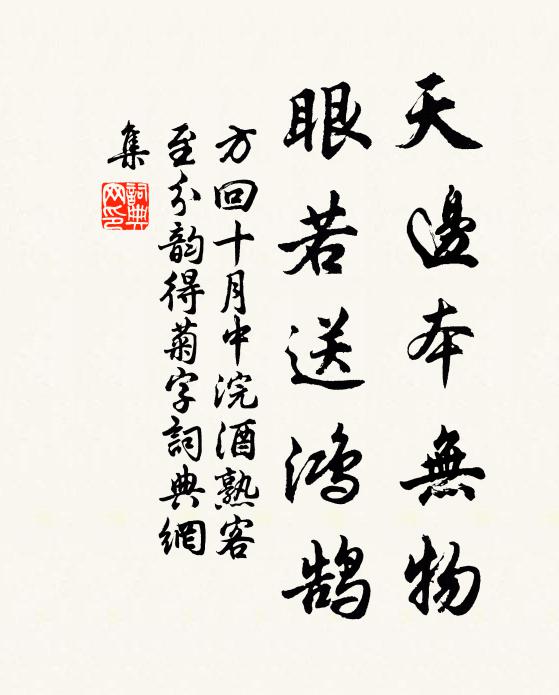 天邊本無物
眼若送鴻鵠
方回十月中浣酒熟客
至分韵得菊字詞典網
集
詞典
网印